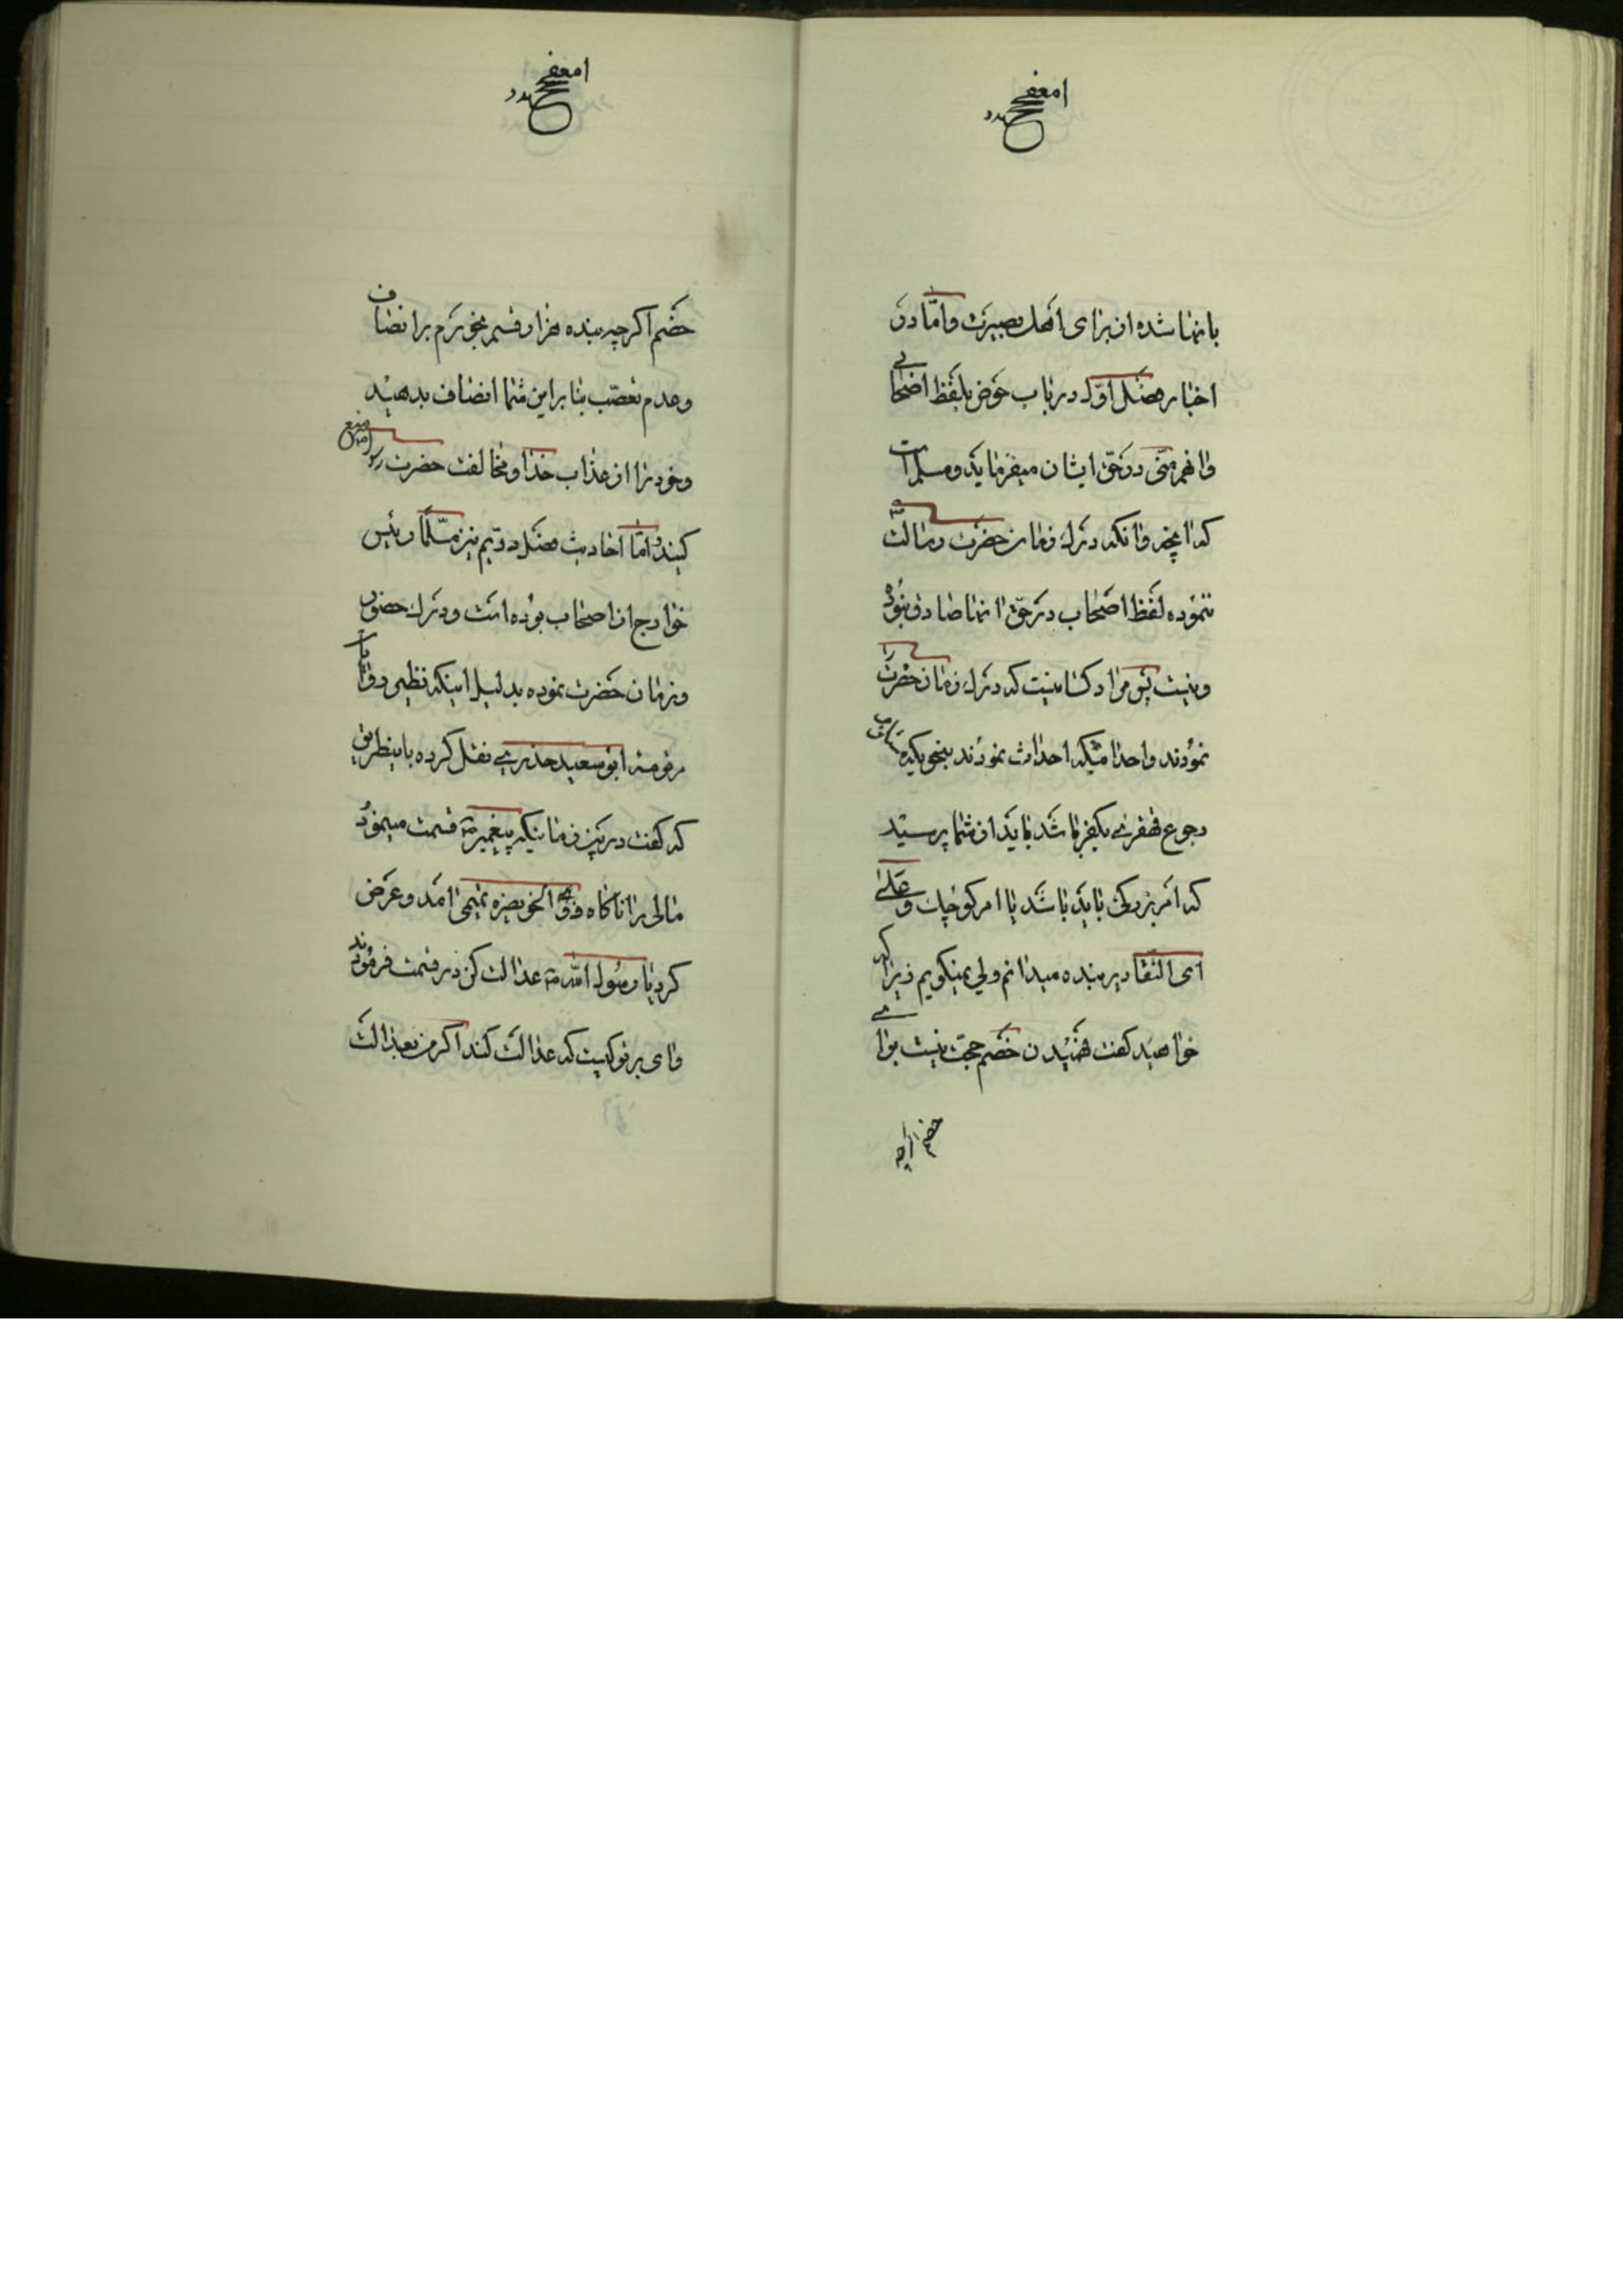 بانها شده از برای اهل بصیرت و امّا در
اخبار فصل اوّل در باب حوض بلفظ اصحابی
وانهم منّی در حق ایشان میفرماید و مسلم است
که انچه وانکه درک زمان حضرت رسالت
ننموده لفظ اصحاب در حق انها صادق نبوده
و نیست پس مراد کسانیست که درک زمان حضرت را
نمودند و احداثیکه احداث نمودند بنحویکه
رجوع قهقری بکفر باشد باید از شما پرسید
که امر بزرکی باید باشد یا امر کوچک و علی
ای التقادیر بنده میدانم ولی نمیکویم زیرا که
خواهید کفت فهمیدن خصم حجت نیست برای
خصم اکرچه
خصم اکرچه بنده هزار قسم بخورم بر انصاف
و عدم تعصّب بنا بر این شما انصاف بدهید
و خود را از عذاب خدا و مخالفت حضرت رسول منع
کنید و امّا احادیث فصل دویم نیز مسلّما رئیس
خوارج از اصحاب بوده است و درک حضور
و زمان حضرت نموده بدلیل اینکه نظیر روایات
مرقومه ابو سعید خدری نقل کرده باینطریق
که کفت در بین زمانیکه پیغمبر ص قسمت مینمود
مالی را ناکاه ذو الخویصره تمیمی امد و عرض
کرد یا رسول الله ص عدالت کن در قسمت فرمودند
وای بر تو کیست که عدالت کند اکر من بعدالت